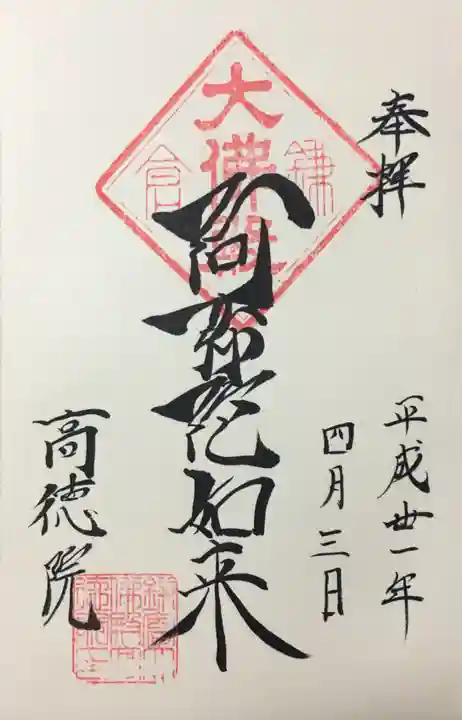 奉拝
平成丗一年
四月三日
鎌倉
大佛殿
阿弥陀如来
高徳院